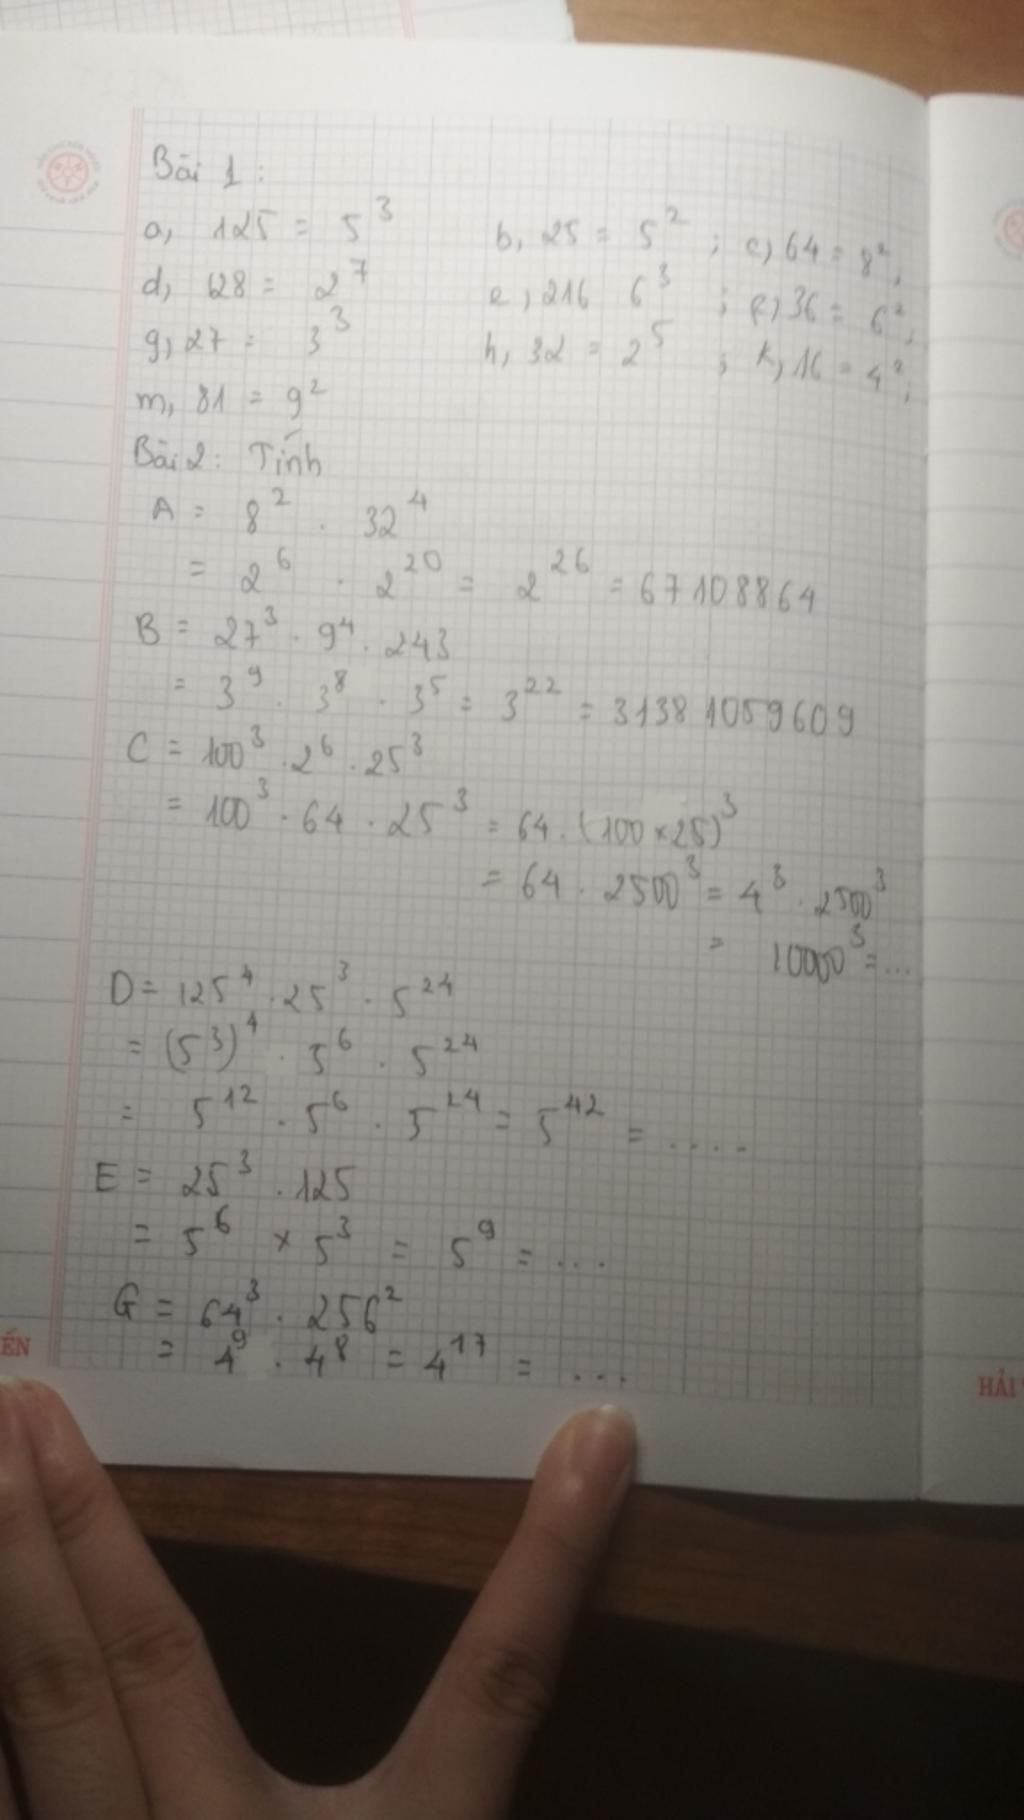 Bài 1:
a, 125 = 5³ b, 25 = 5² ; c, 64 = 8²;
d, 128 = 2⁷ e, 216 6³ ; f, 36 = 6²;
g, 27 = 3³ h, 32 = 2⁵ ; k, 16 = 4²;
m, 81 = 9²
Bài 2: Tính
A = 8² . 32⁴
= 2⁶ . 2²⁰ = 2²⁶ = 67108864
B = 27³ . 9⁴ . 243
= 3⁹ . 3⁸ . 3⁵ = 3²² = 31381059609
C = 100³ . 2⁶ . 25³
= 100³ . 64 . 25³ = 64 . (100 × 25)³
= 64 . 2500³ = 4³ . 2500³
= 10000³ = ...
D = 125⁴ . 25³ . 5²⁴
= (5³)⁴ . 5⁶ . 5²⁴
= 5¹² . 5⁶ . 5²⁴ = 5⁴² = .....
E = 25³ . 125
= 5⁶ × 5³ = 5⁹ = ...
G = 64³ . 256²
= 4⁹ . 4⁸ = 4¹⁷ = ...
ẾN
HẢI